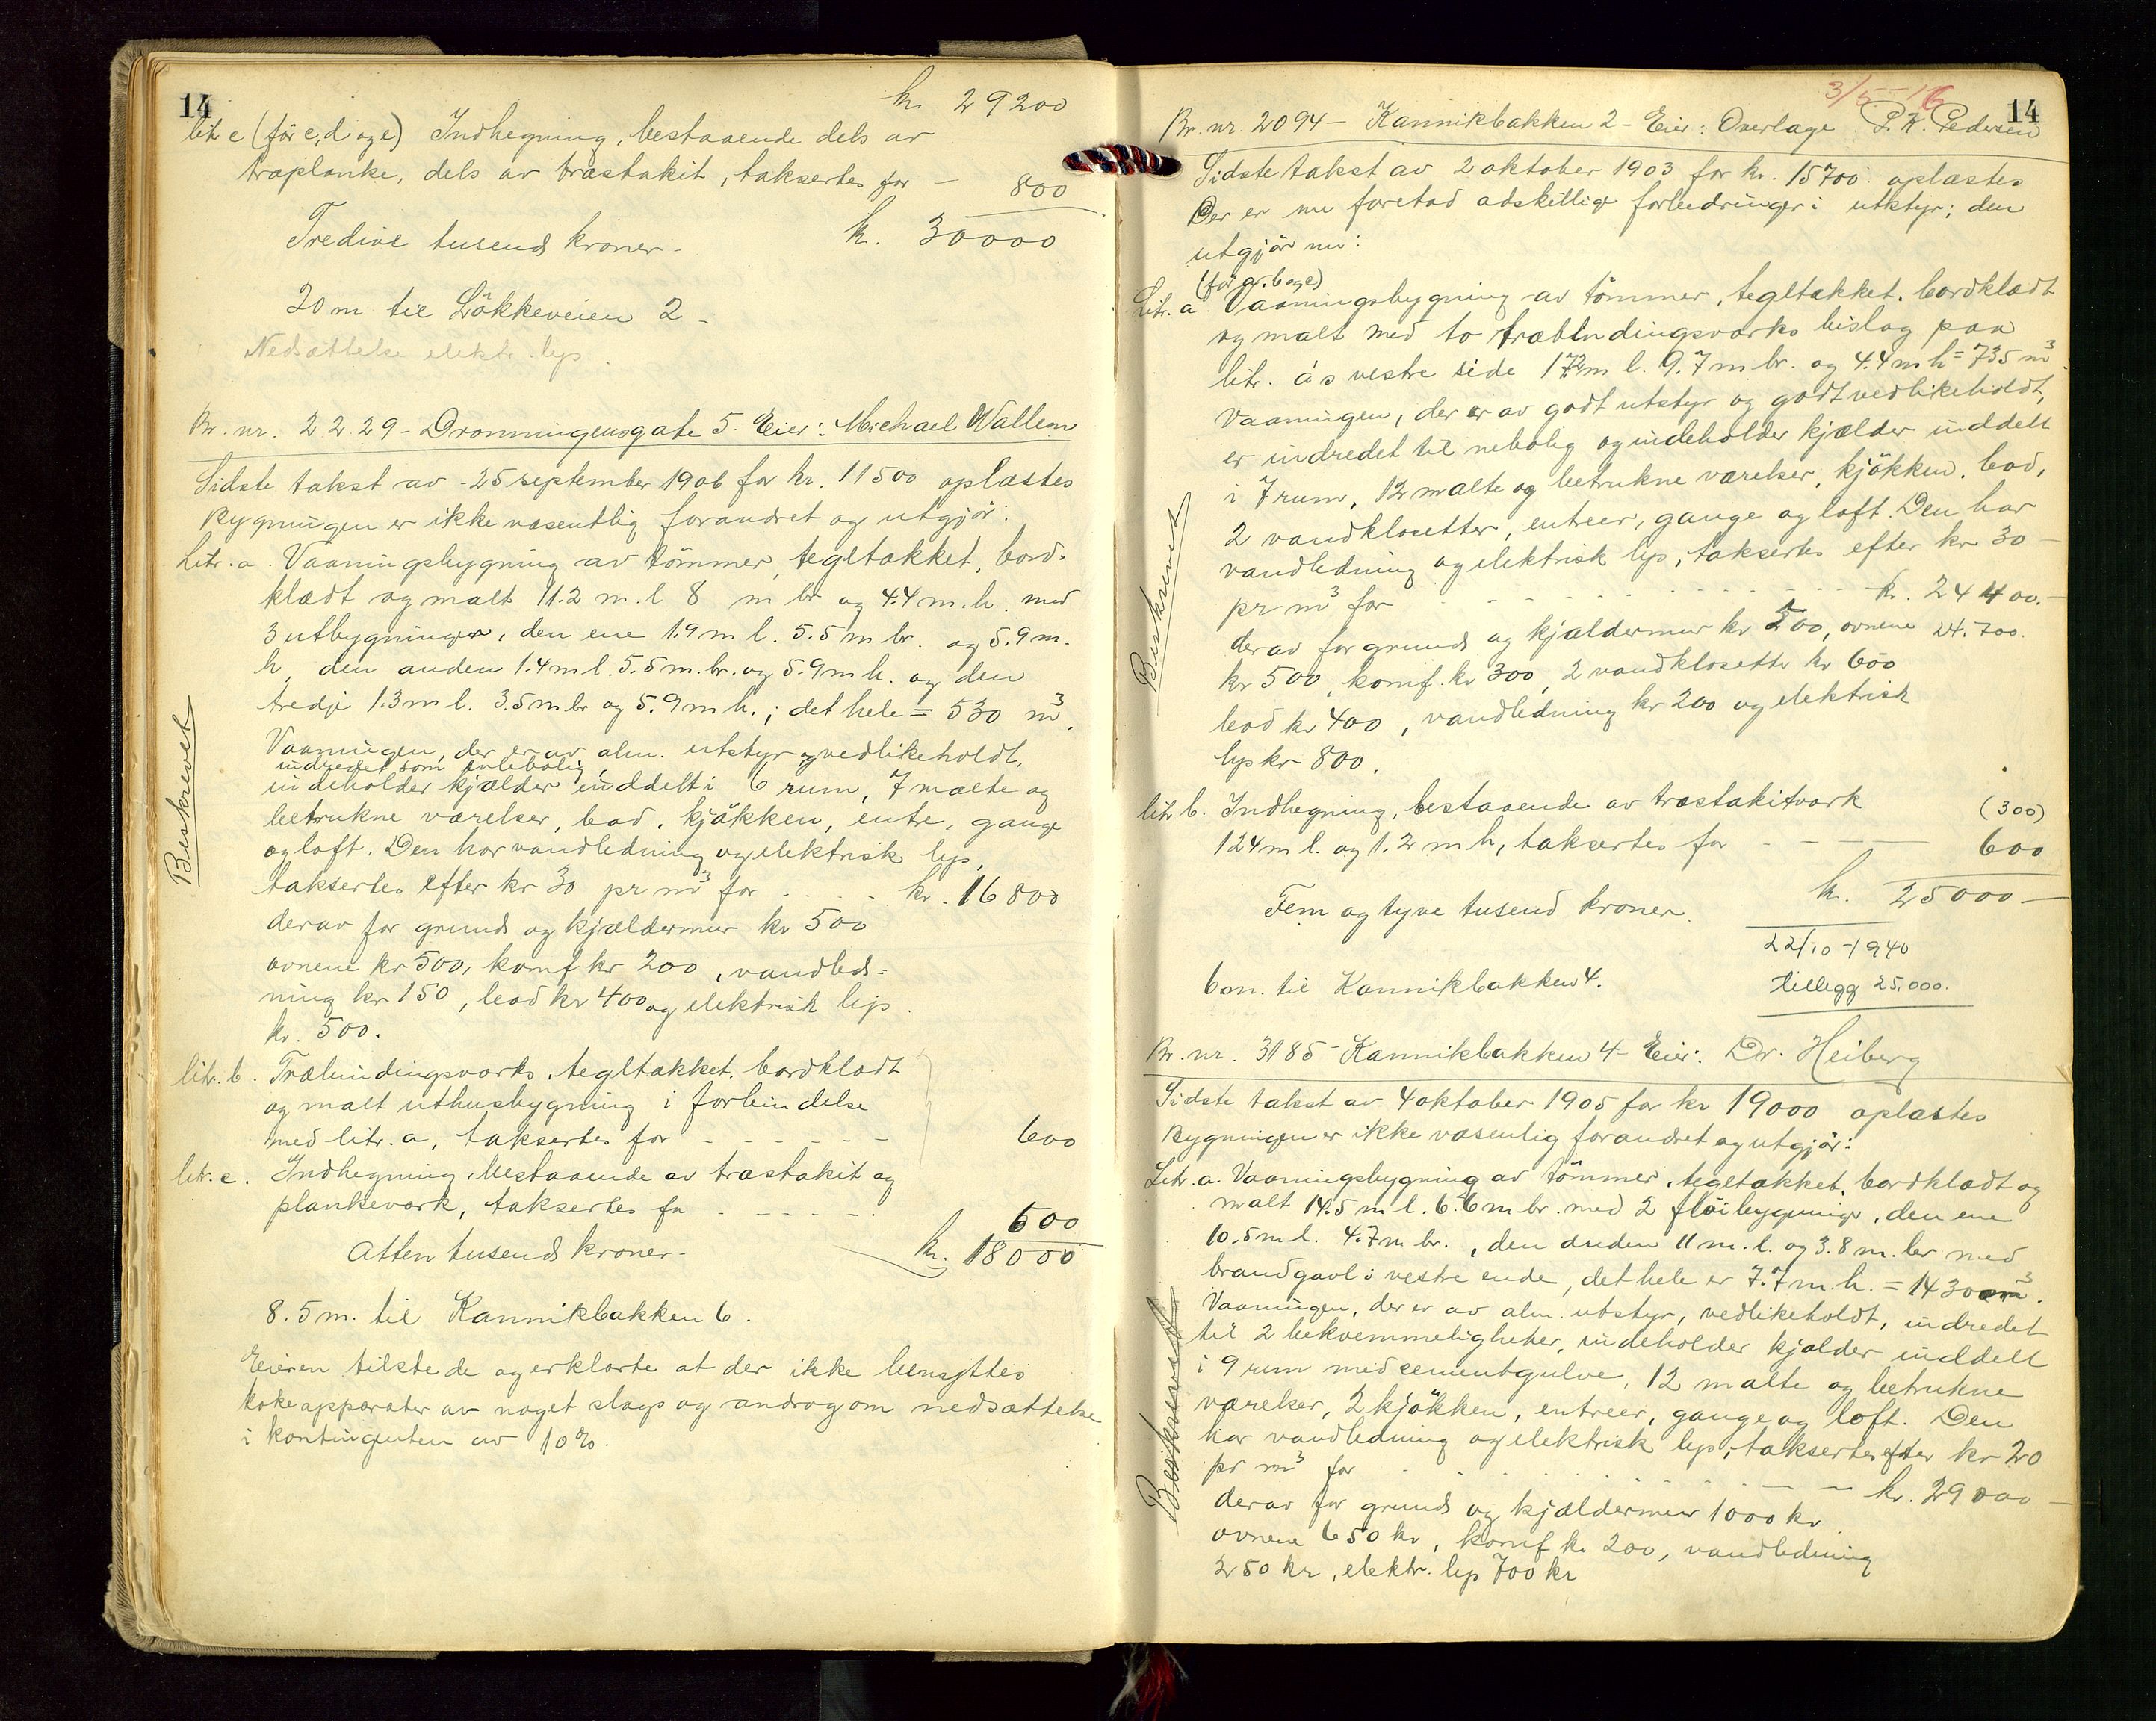 14
kr. 29200
litr. c (før c, d og e) Indhegning, bestaaende dels av
træplanke, dels av træstakit, taksertes for — 800
Tredive tusend kroner - kr. 30000
20 m til Lökkeveien 2 -
Nedsættelse elektr. lys.
Br. nr. 2229 - Dronningensgate 5. Eier: Michael Wallem
Sidste takst av - 25 september 1906 for kr. 11500 oplæstes
Bygningen er ikke væsentlig forandret og utgjör:
Litr. a. Vaaningsbygning av tömmer, tegltækket, bord-
klædt og malt 11.2 m. l 8 m br og 4.4 m. h. med
3 utbygninger, den ene 1.9 m l. 5.5 m br. og 5.9 m.
h, den anden 1.4 m l. 5.5 m. br. og 5.9 m h. og den
tredje 1.3 m l. 3.5 m br og 5.9 m h.; det hele = 530 m³.
Vaaningen, der er av alm. utstyr og vedlikeholdt,
indredet som enebolig,
indeholder kjælder inddelt i 6 rum, 7 malte og
betrukne værelser, bad, kjökken, entre, gange
og loft. Den har vandledning og elektrisk lys,
taksertes efter kr 30 pr m³ for . . . . kr. 16800
derav for grund og kjældermur kr 500
ovnene kr 500, komf kr 200, vandled-
ning kr 150, bad kr 400 og elektrisk lys
kr. 500.
litr. b. Træbindingsværks, tegltækket, bordklædt
og malt uthusbygning i forbindelse
med litr. a, taksertes for - - - - - - 600
litr. c. Indhegning, bestaaende av træstakit og
plankeværk, taksertes for - - - - - 600
Atten tusend kroner - kr. 18000
8.5 m. til Kannikbakken 6.
Eieren tilstede og erklærte at der ikke benyttes
kokeapparater av noget slags og androg om nedsættelse
i kontingenten av 10%.
Beskrevet
3/5-16
14
Br. nr. 2094 - Kannikbakken 2 - Eier: Overlage P. K. Pedersen
Sidste takst av 2 oktober 1903 for kr. 15700 oplæstes
Der er nu foretad adskillige forbedringer i utstyr; den
utgjör nu:
(før a, b og c)
Litr. a. Vaaningsbygning av tömmer, tegltækket, bordklædt
og malt med to træbindingsværks bislag paa
litr. a's vestre side 17.2 m l. 9.7 m br. og 4.4 m h = 735 m³.
Vaaningen, der er av godt utstyr og godt vedlikeholdt,
er indredet til enebolig og indeholder kjælder inddelt
i 7 rum, 12 malte og betrukne værelser, kjökken, bad,
2 vandklosetter, entreer, gange og loft. Den har
vandledning og elektrisk lys, taksertes efter kr 30 —
pr m³ for - - - - - - - kr. 24400.—
derav for grund og kjældermur kr 500, ovnene 24.700.
kr 500, komf. kr 300, 2 vandklosetter kr 600
bad kr 400, vandledning kr 200 og elektrisk
lys kr 800.
litr b. Indhegning, bestaaende av træstakitværk (300)
124 m l. og 1.2 m h, taksertes for - - - 600
kr. 25000 —
Fem og tyve tusend kroner.
22/10-1940
6 m. til Kannikbakken 4.
tillegg 25.000.
Br. nr. 3185 - Kannikbakken 4 - Eier: Dr. Heiberg
Sidste takst av 4 oktober 1905 for kr 19000 oplæstes
Bygningen er ikke væsenlig forandret og utgjör:
Litr. a. Vaaningsbygning av tömmer, tegltækket, bordklædt og
malt 14.5 m l. 6.6 m br. med 2 flöibygninger, den ene
10.5 m l. 4.7 m br., den anden 11 m. l. og 3.8 m. br med
brandgavl i vestre ende, det hele er 7.7 m. h. = 1430 m³.
Vaaningen, der er av alm. utstyr, vedlikeholdt, indredet
til 2 bekvemmeligheter, indeholder kjælder inddelt
i 9 rum med cementgulve, 12 malte og betrukne
værelser, 2 kjökken, entreer, gange og loft. Den
har vandledning og elektrisk lys, taksertes efter kr 20
pr m³ for - - - - - - - kr. 29000 —
derav for grund og kjældermur 1000 kr
ovnene 650 kr, komf kr 200, vandledning
250 kr, elektr. lys 700 kr
Beskrevet
Beskrevet